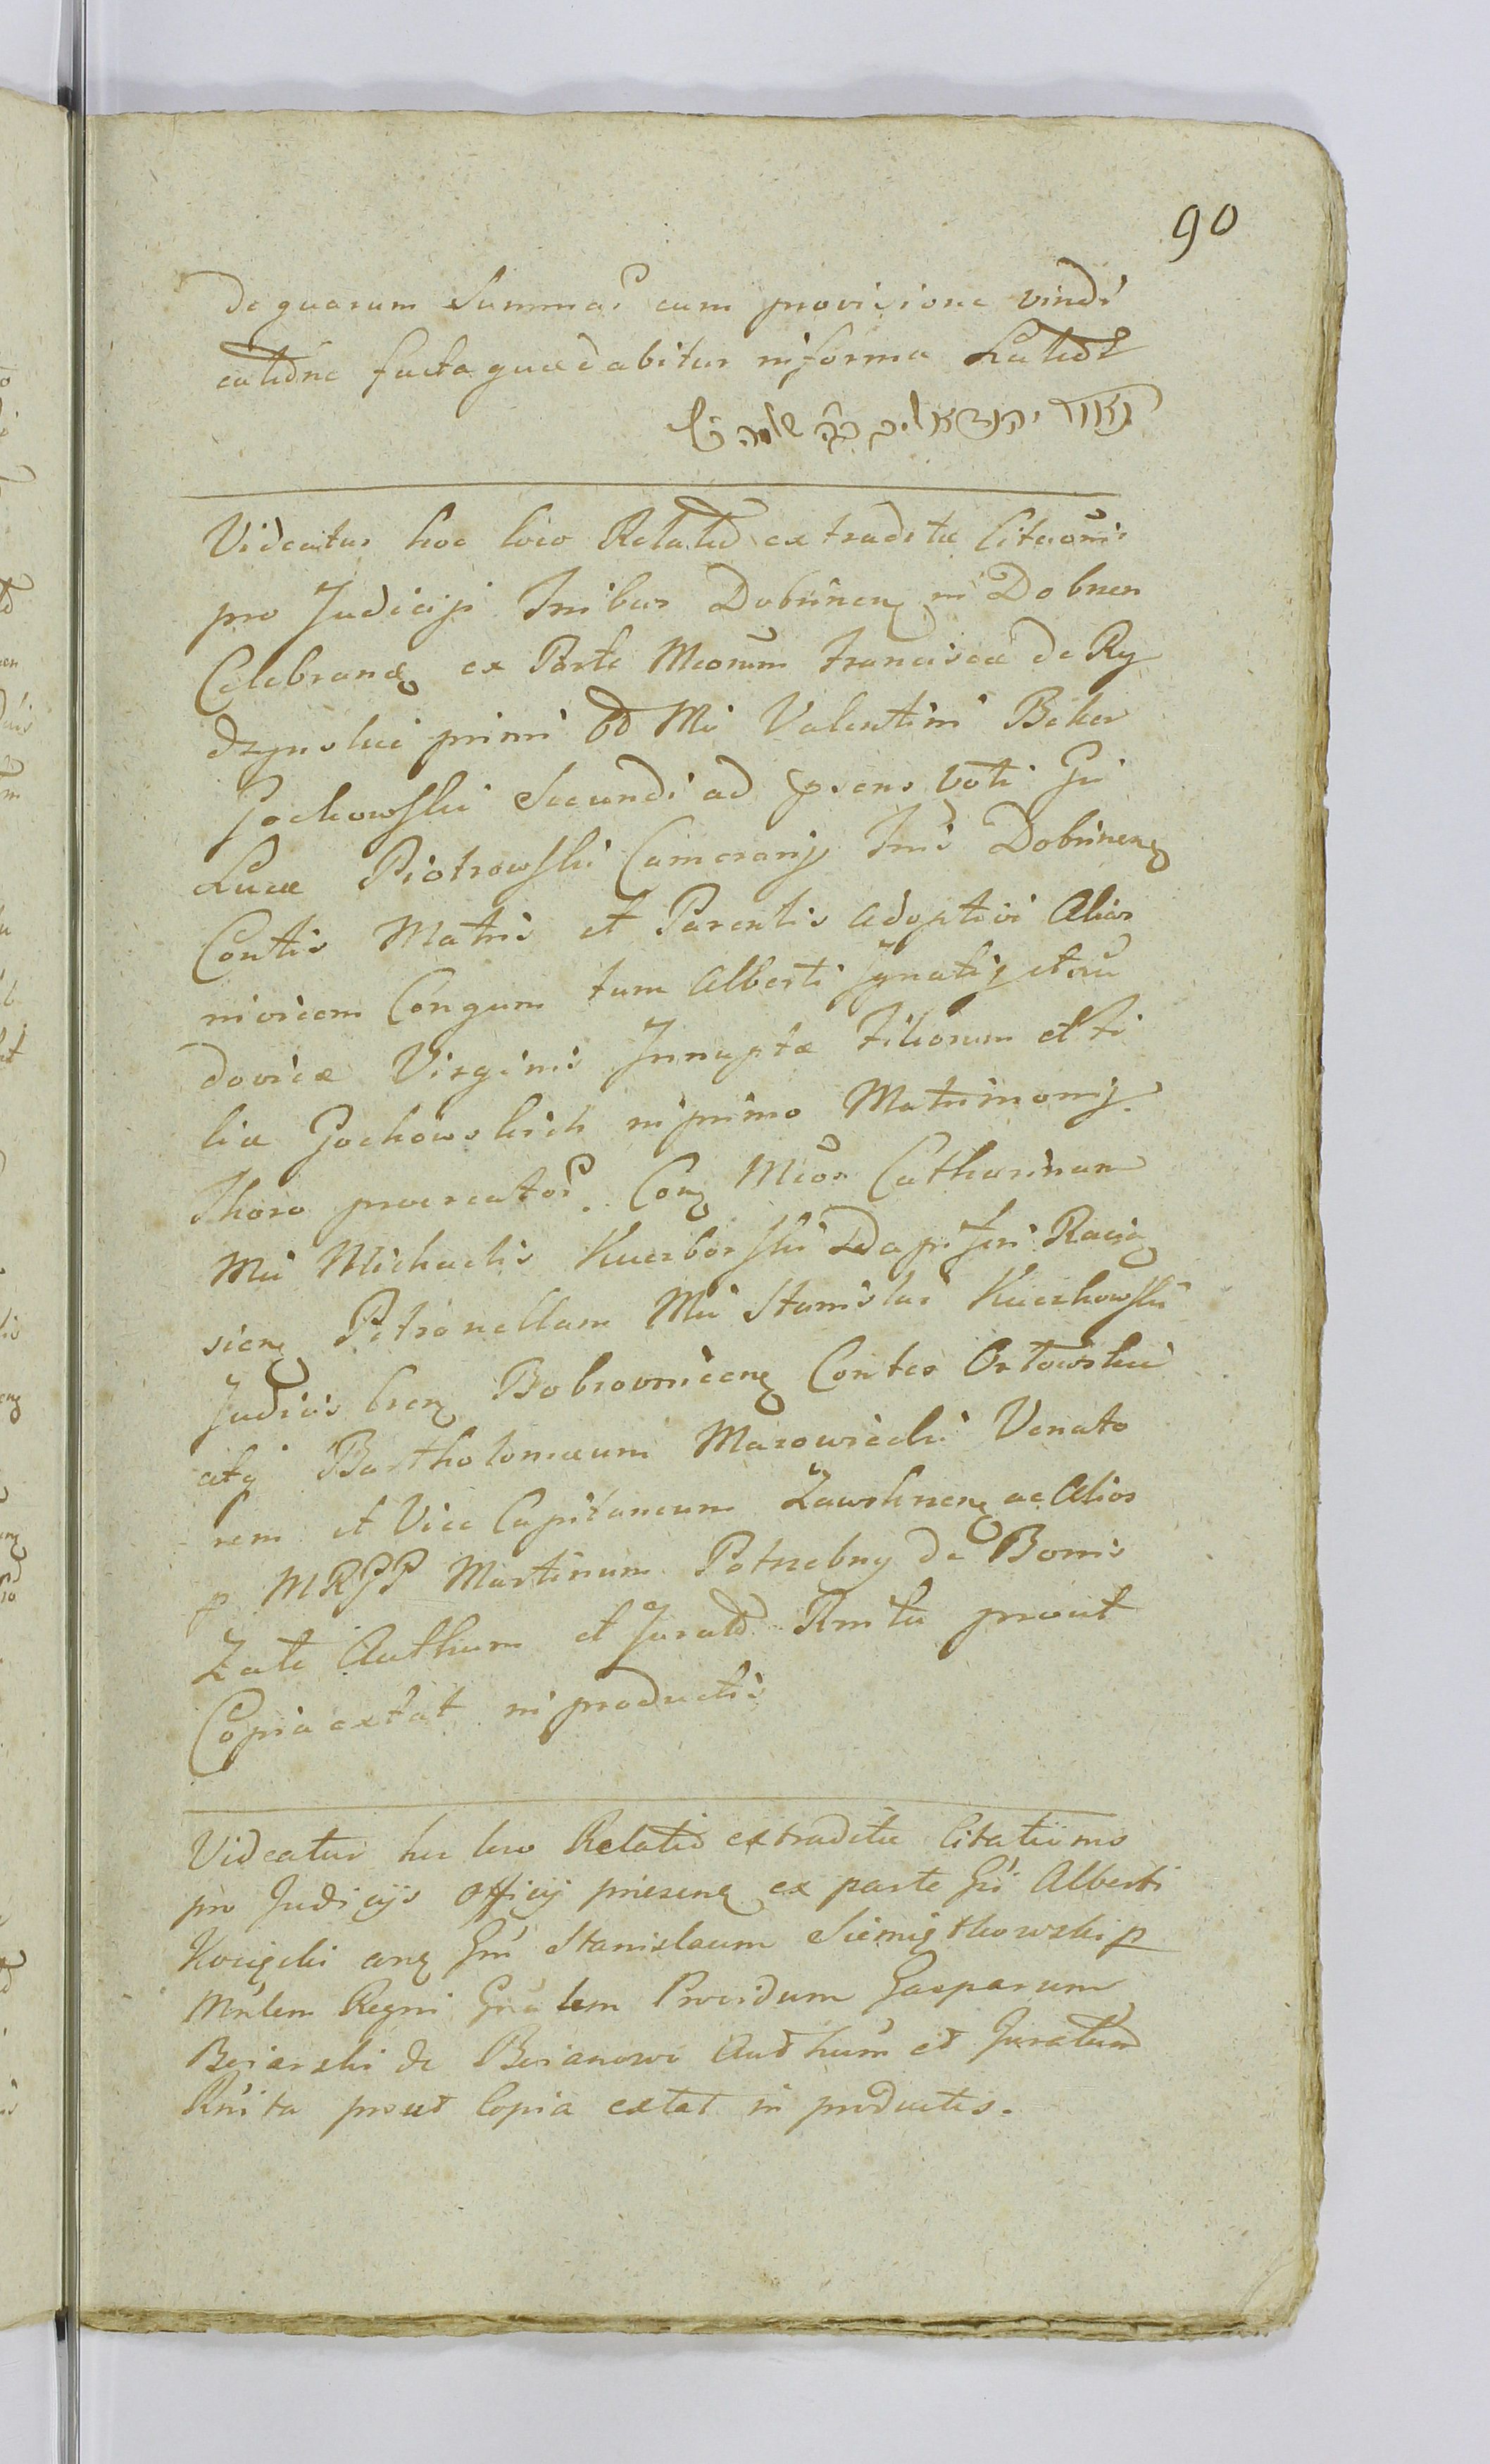 90
de quarum Summas cum provisione vindi
catione facta quaedabitur in forma Latiori
Videatur hoc loco Relatio extraditae Citaōnis
pro Judicijs Tribus Dobrinen in Dobrzen
Celebrand ex Parte Mcorum Francisca de Ry
dzynskie primi od Mci Valentini Beker
Gockowski Secundi ad psens voti Gsi
Lucae Piotrowski Camerarij Tris Dobrinen
Contis Matris et Parentis adoptivi Alias
invicem Congum tum Alberti Ignatij et Lu
dovicae Virginis Innuptae Filiorum et Fi
lia Gockowskich in primo Matrimonij
Thoro procreator Con Mcos Catharinam
Mci Michaelis Kuczborski Dapiferi Racią
sien Petronellam Mci Stanislai Kuczkowski
Judicis Cren Bobrovnicen Contes Orłowskie
atq Bartholomaeum Mazowiecki Venato
rem et Vice Capitaneum Zawskrzen ac Alios
p MRGP Martinum Potrzebny de Bonis
Zale Authum et Juratō Rnita prout
Copia extat in productis
Videatur hic loco Relatio extraditae Citationis
pro Judicijs Officij priesene ex parte Gsi Alberti
Kocięcki cone Gsū Stanislaum Siemiątkowski p
Mrłem Regni Gnalem Providum Gasparum
Beiarski de Beianowo Authum et Juratum
Rnita prout Copia extat in productis.